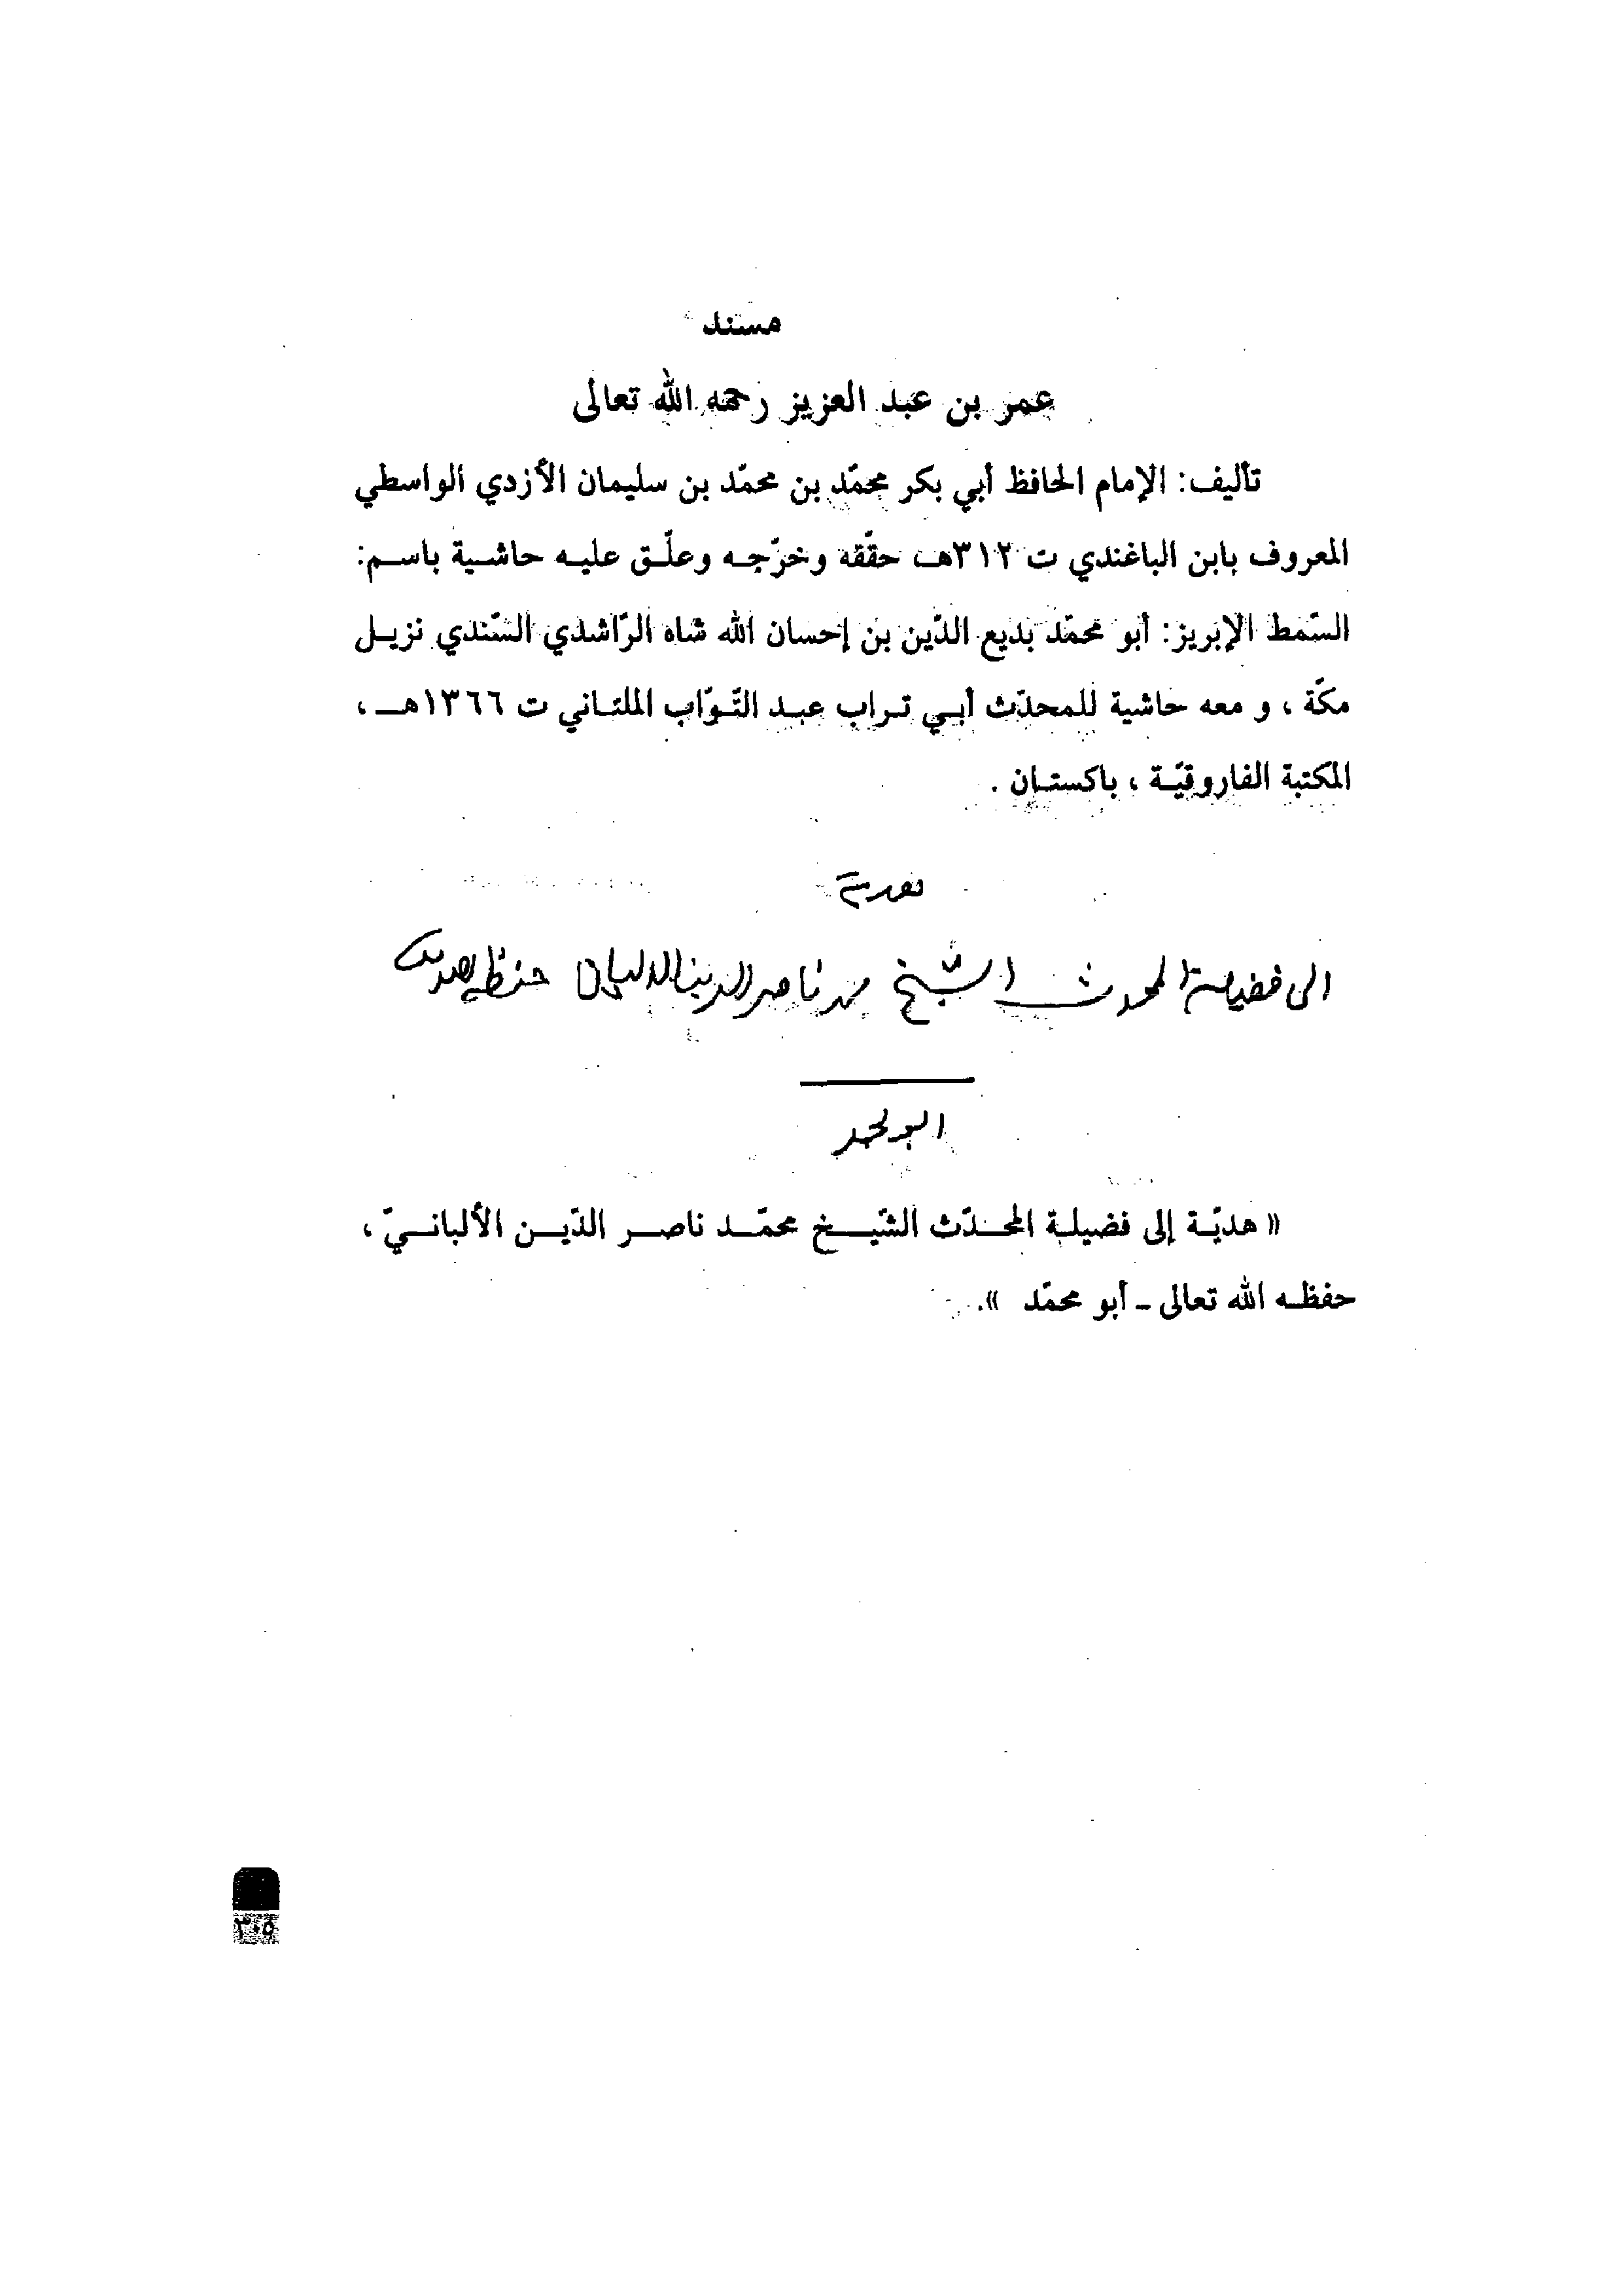 مسند
عمر بن عبد العزيز رحمه الله تعالى
تأليف: الإمام الحافظ أبي بكر محمّد بن محمّد بن سليمان الأزدي الواسطي
المعروف بابن الباغندي ت ٣١٢هـ حقّقه وخرّجه وعلّق عليه حاشية باسم:
السّمط الإبريز: أبو محمّد بديع الدّين بن إحسان الله شاه الرّاشدي السّندي نزيل
مكّة ، و معه حاشية للمحدّث أبي تراب عبد التّوّاب الملتاني ت ١٣٦٦هـ ،
المكتبة الفاروقيّة ، باكستان .
هدية
الى فضيلة المحدث الشيخ محمد ناصر الدين الالبانى حفظه الله تعالى
ابو محمد
« هديّة إلى فضيلة المحدّث الشّيخ محمّد ناصر الدّين الألبانيّ ،
حفظه الله تعالى ـ أبو محمّد ».
٣٠٥